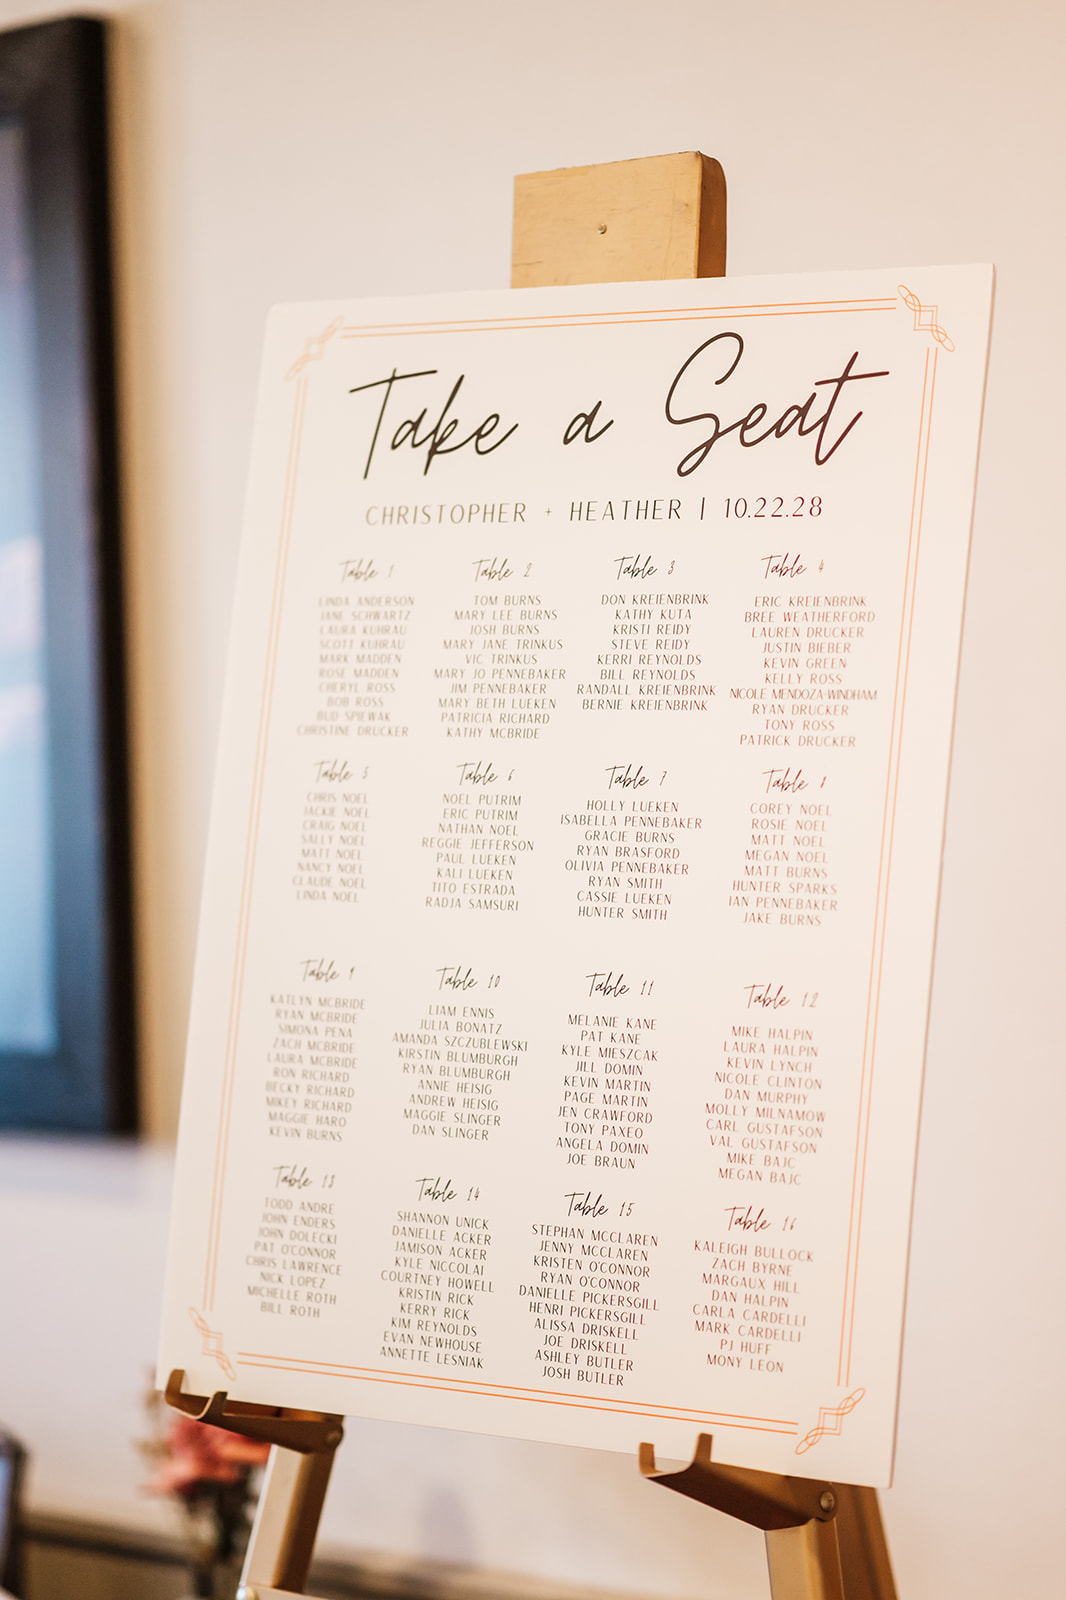 Take a Seat
CHRISTOPHER + HEATHER | 10.22.28
Table 1
LINDA ANDERSON
JANE SCHWARTZ
LAURA KUHRAU
SCOTT KUHRAU
MARK MADDEN
ROSE MADDEN
CHERYL ROSS
BOB ROSS
BUD SPIEWAK
CHRISTINE DRUCKER
Table 2
TOM BURNS
MARY LEE BURNS
JOSH BURNS
MARY JANE TRINKUS
VIC TRINKUS
MARY JO PENNEBAKER
JIM PENNEBAKER
MARY BETH LUEKEN
PATRICIA RICHARD
KATHY MCBRIDE
Table 3
DON KREIENBRINK
KATHY KUTA
KRISTI REIDY
STEVE REIDY
KERRI REYNOLDS
BILL REYNOLDS
RANDALL KREIENBRINK
BERNIE KREIENBRINK
Table 4
ERIC KREIENBRINK
BREE WEATHERFORD
LAUREN DRUCKER
JUSTIN BIEBER
KEVIN GREEN
KELLY ROSS
NICOLE MENDOZA-WINDHAM
RYAN DRUCKER
TONY ROSS
PATRICK DRUCKER
Table 5
CHRIS NOEL
JACKIE NOEL
CRAIG NOEL
SALLY NOEL
MATT NOEL
NANCY NOEL
CLAUDE NOEL
LINDA NOEL
Table 6
NOEL PUTRIM
ERIC PUTRIM
NATHAN NOEL
REGGIE JEFFERSON
PAUL LUEKEN
KALI LUEKEN
TITO ESTRADA
RADJA SAMSURI
Table 7
HOLLY LUEKEN
ISABELLA PENNEBAKER
GRACIE BURNS
RYAN BRASFORD
OLIVIA PENNEBAKER
RYAN SMITH
CASSIE LUEKEN
HUNTER SMITH
Table 8
COREY NOEL
ROSIE NOEL
MATT NOEL
MEGAN NOEL
MATT BURNS
HUNTER SPARKS
IAN PENNEBAKER
JAKE BURNS
Table 9
KATLYN MCBRIDE
RYAN MCBRIDE
SIMONA PENA
ZACH MCBRIDE
LAURA MCBRIDE
RON RICHARD
BECKY RICHARD
MIKEY RICHARD
MAGGIE HARO
KEVIN BURNS
Table 10
LIAM ENNIS
JULIA BONATZ
AMANDA SZCZUBLEWSKI
KIRSTIN BLUMBURGH
RYAN BLUMBURGH
ANNIE HEISIG
ANDREW HEISIG
MAGGIE SLINGER
DAN SLINGER
Table 11
MELANIE KANE
PAT KANE
KYLE MIESZCAK
JILL DOMIN
KEVIN MARTIN
PAGE MARTIN
JEN CRAWFORD
TONY PAXEO
ANGELA DOMIN
JOE BRAUN
Table 12
MIKE HALPIN
LAURA HALPIN
KEVIN LYNCH
NICOLE CLINTON
DAN MURPHY
MOLLY MILNAMOW
CARL GUSTAFSON
VAL GUSTAFSON
MIKE BAJC
MEGAN BAJC
Table 13
TODD ANDRE
JOHN ENDERS
JOHN DOLECKI
PAT O'CONNOR
CHRIS LAWRENCE
NICK LOPEZ
MICHELLE ROTH
BILL ROTH
Table 14
SHANNON UNICK
DANIELLE ACKER
JAMISON ACKER
KYLE NICCOLAI
COURTNEY HOWELL
KRISTIN RICK
KERRY RICK
KIM REYNOLDS
EVAN NEWHOUSE
ANNETTE LESNIAK
Table 15
STEPHAN MCCLAREN
JENNY MCCLAREN
KRISTEN O'CONNOR
RYAN O'CONNOR
DANIELLE PICKERSGILL
HENRI PICKERSGILL
ALISSA DRISKELL
JOE DRISKELL
ASHLEY BUTLER
JOSH BUTLER
Table 16
KALEIGH BULLOCK
ZACH BYRNE
MARGAUX HILL
DAN HALPIN
CARLA CARDELLI
MARK CARDELLI
PJ HUFF
MONY LEON